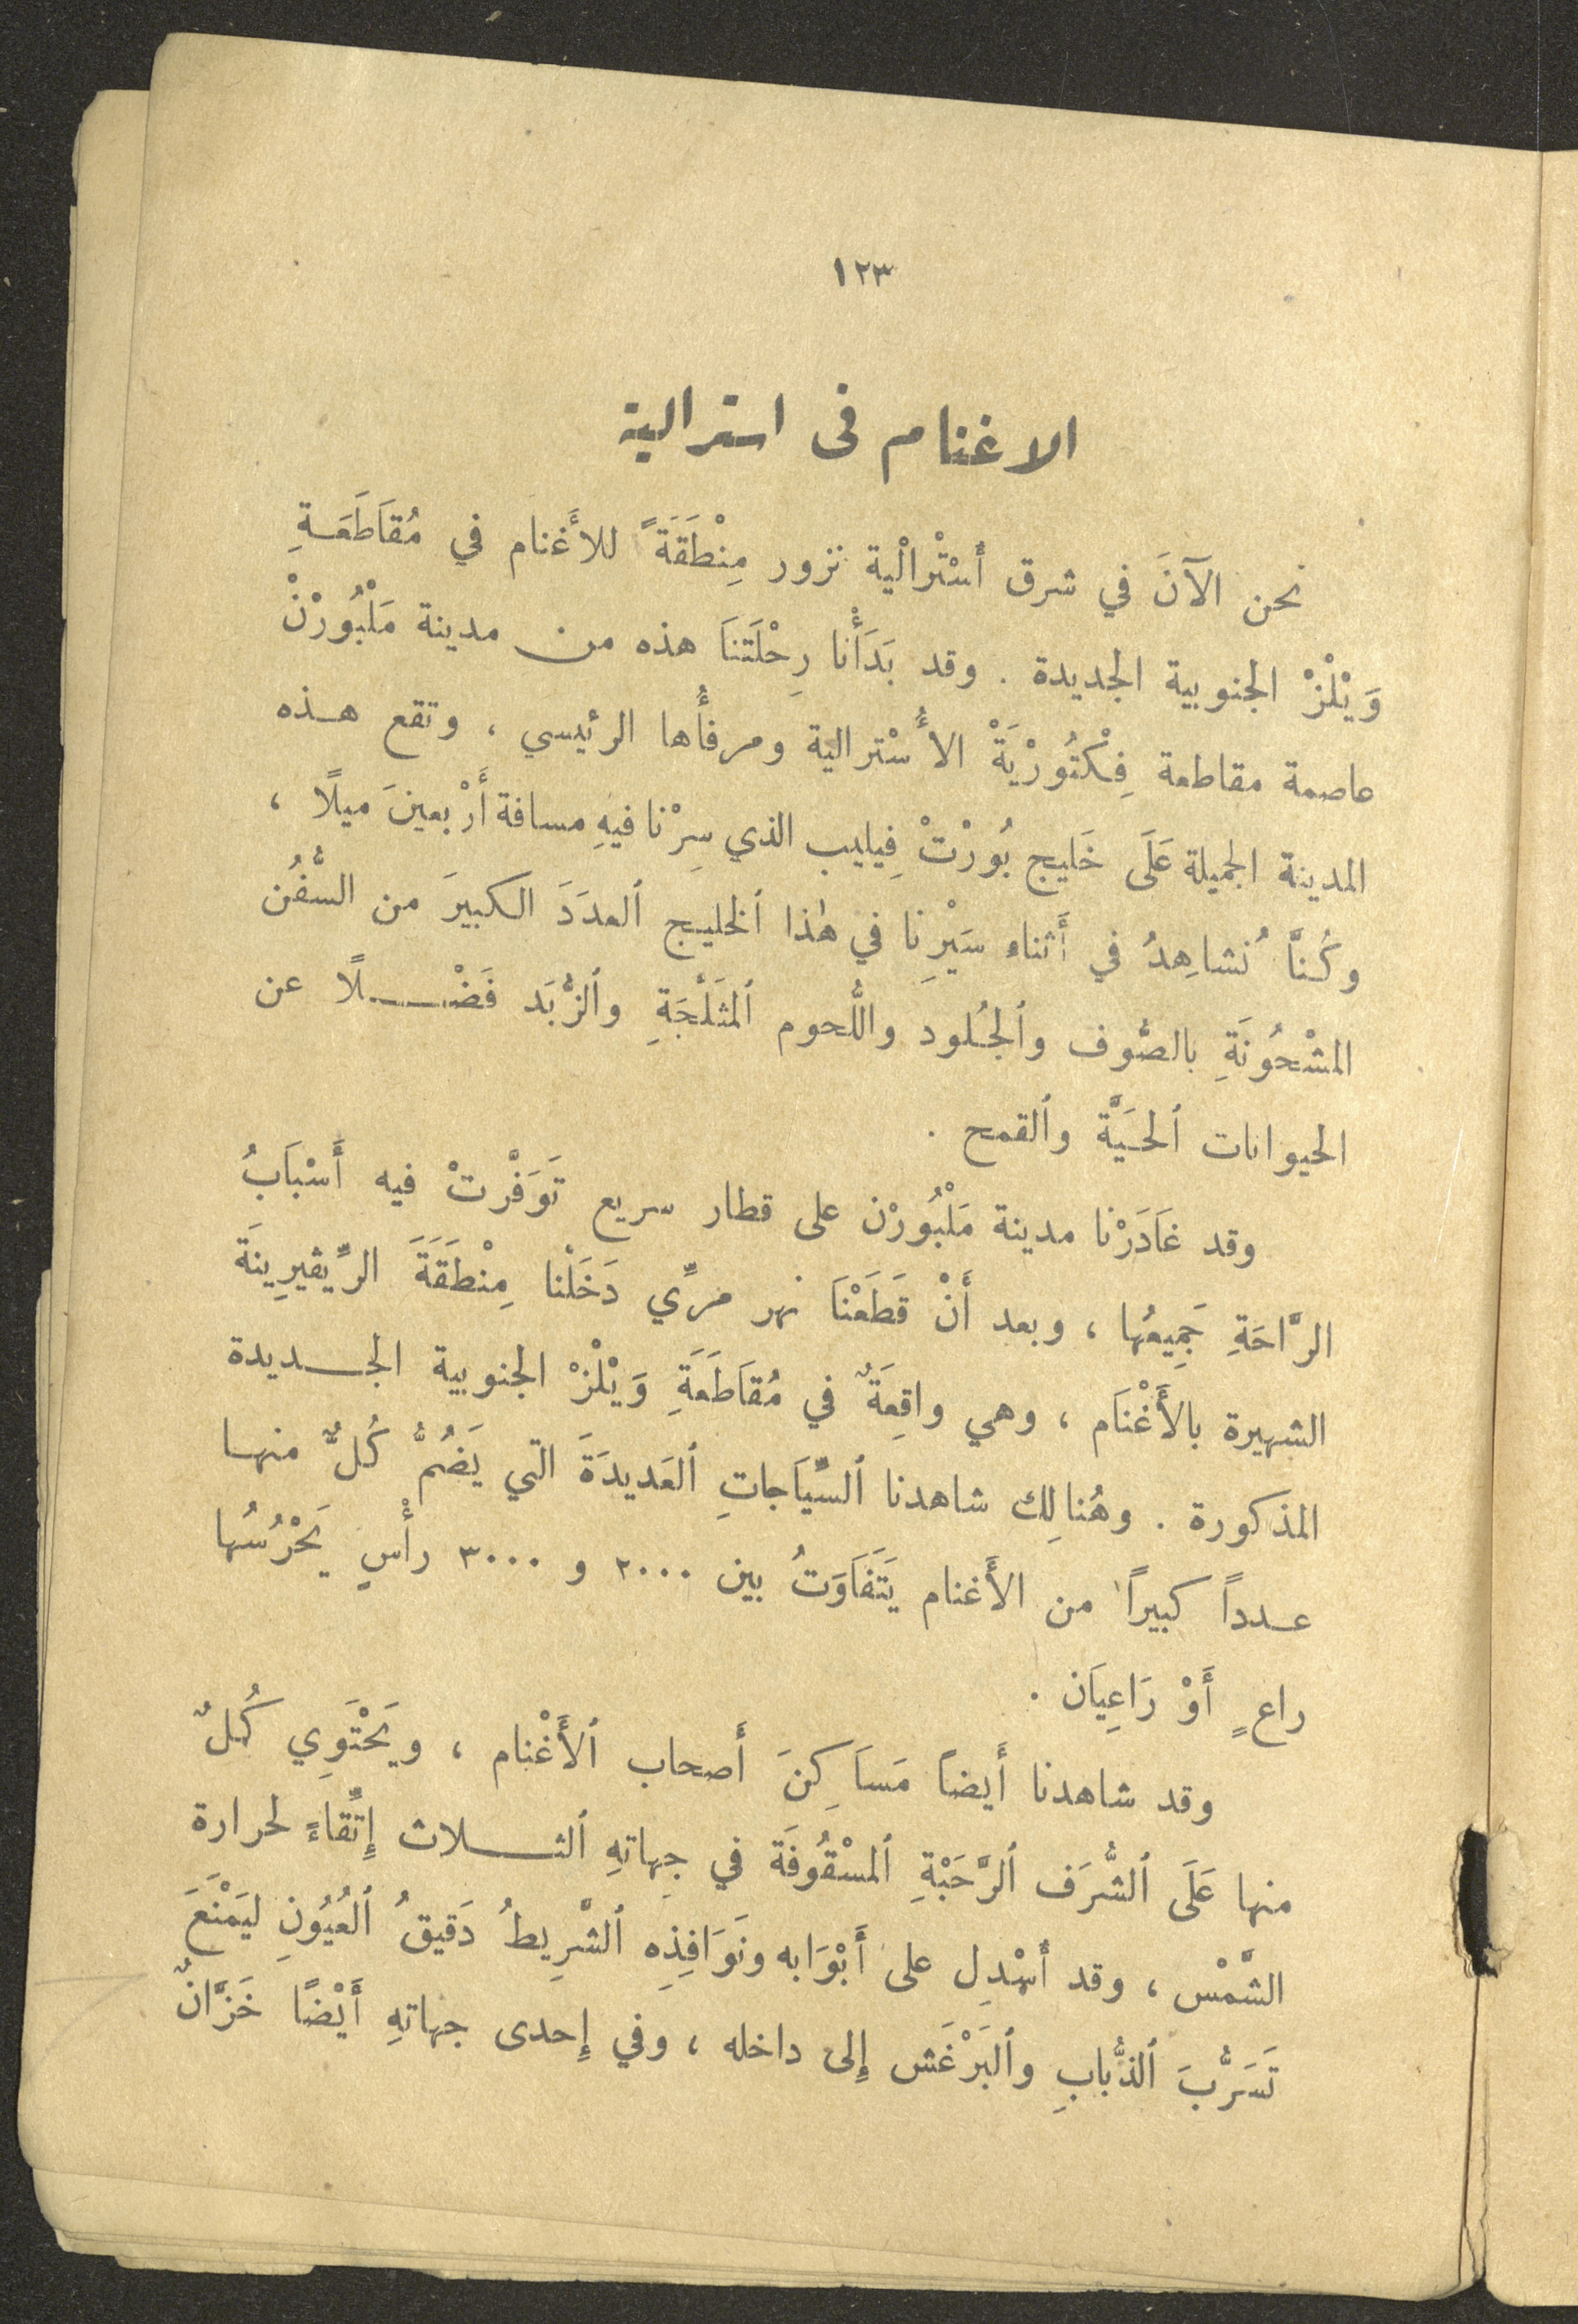 ١٢٣
الاغنام فى استرالية
نحن الآنَ في شرق أَسْتْرالْية نزور مِنْطَقَةً للأَغنام في مُقَاطَعَةِ
وَيْلْزْ الجنوبية الجديدة . وقد بَدَأْنا رِحْلَتَنَا هذه من مدينة مَلْبُورْنْ
عاصمة مقاطعة فِكْتُورْيَةْ الأَسْترالية ومرفأُها الرئيسي ، وتقع هذه
المدينة الجميلة عَلَى خَليج بُورْتْ فِيليب الذي سِرْنا فيهِ مسافة أَرْبعينَ ميلاً ،
وكُنَّا نُشاهِدُ في أَثناء سَيْرِنا في هٰذا ٱلخليج ٱلعدَدَ الكبيرَ من السُّفُن
المشْحُونَةِ بالصُّوف وٱلجُلود واللُّحوم ٱلمثَلَّجَةِ وٱلزُّبَد فَضْلاً عن
الحيوانات ٱلحَيَّة وٱلقمح .
وقد غَادَرْنا مدينة مَلْبُورْن على قطار سريع تَوَفَّرتْ فيه أَسْبَابُ
الرَّاحَةِ جَمِيعُها ، وبعد أَنْ قَطَعْنَا نهر مرِّي دَخَلْنا مِنْطَقَةَ الرِّيڤيرِينَة
الشهيرة بالأَغْنَام ، وهي واقِعَةٌ في مُقَاطَعَةِ وَيْلْزْ الجنوبية الجديدة
المذكورة . وهُنالِك شاهدنا ٱلسِّيَاجاتِ ٱلعَديدَةَ التي يَضُمُّ كُلٌّ منها
عدداً كبيراً من الأَغنام يَتَفَاوَتُ بين ٢٠٠٠ و ٣٠٠٠ رأْسٍ يَحْرُسُها
راعٍ أَوْ رَاعِيَان .
وقد شاهدنا أَيضاً مَسَاكِنَ أَصحاب ٱلأَغْنام ، ويَحْتَوِي كُلٌ
منها عَلَى ٱلشُّرَف ٱلرَّحَبْةِ ٱلمسْقُوفَة في جِهاتهِ ٱلثلاث إِتِّقاءً لحرارة
الشَّمْس ، وقد أُسْدِل على أَبْوَابه ونَوَافِذِه ٱلشَّرِيطُ دَقيقُ ٱلعُيُونِ ليَمْنَعَ
تَسَرُّبَ ٱلذُّبابِ وٱلبَرْغَش إِلى داخله ، وفي إِحدى جهاتهِ أَيْضًا خَزَّانٌ